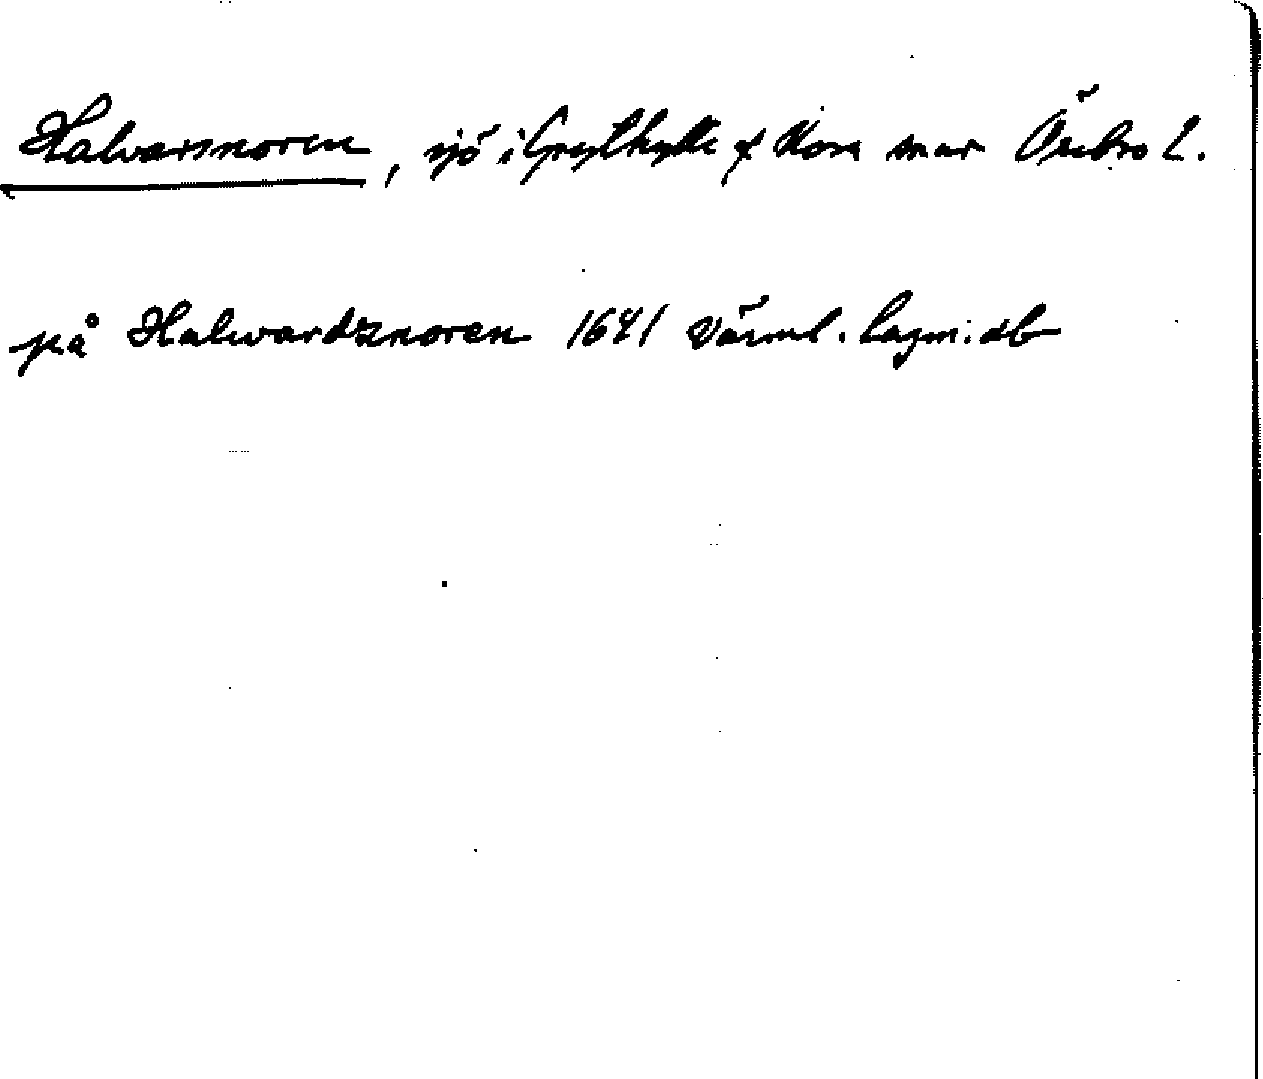 Halvarsnoren, sjö i Grythytte Nora Örebro l.
på Halwardznoren 1641 Värml. lagm. db